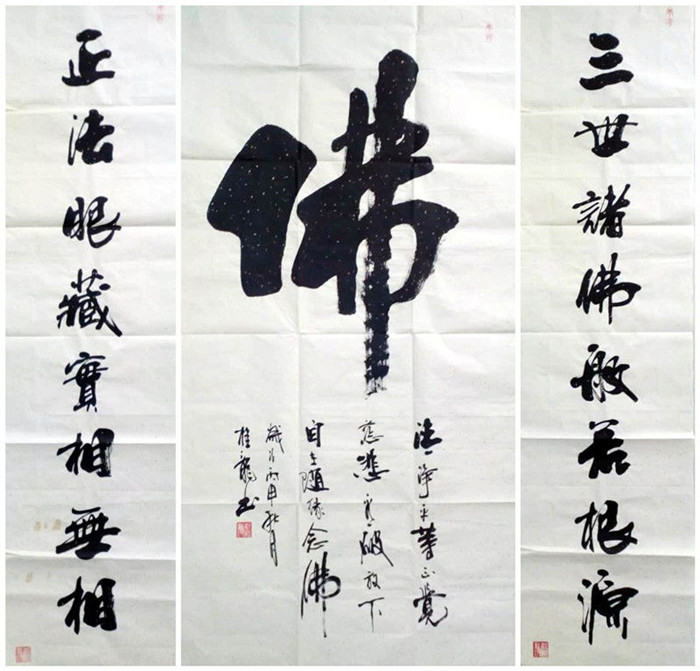 三世諸佛般若根源
佛
清淨平等正覺
慈悲看破放下
自在隨緣念佛
歲次丙申秋月
桂龍书
正法眼藏實相無相